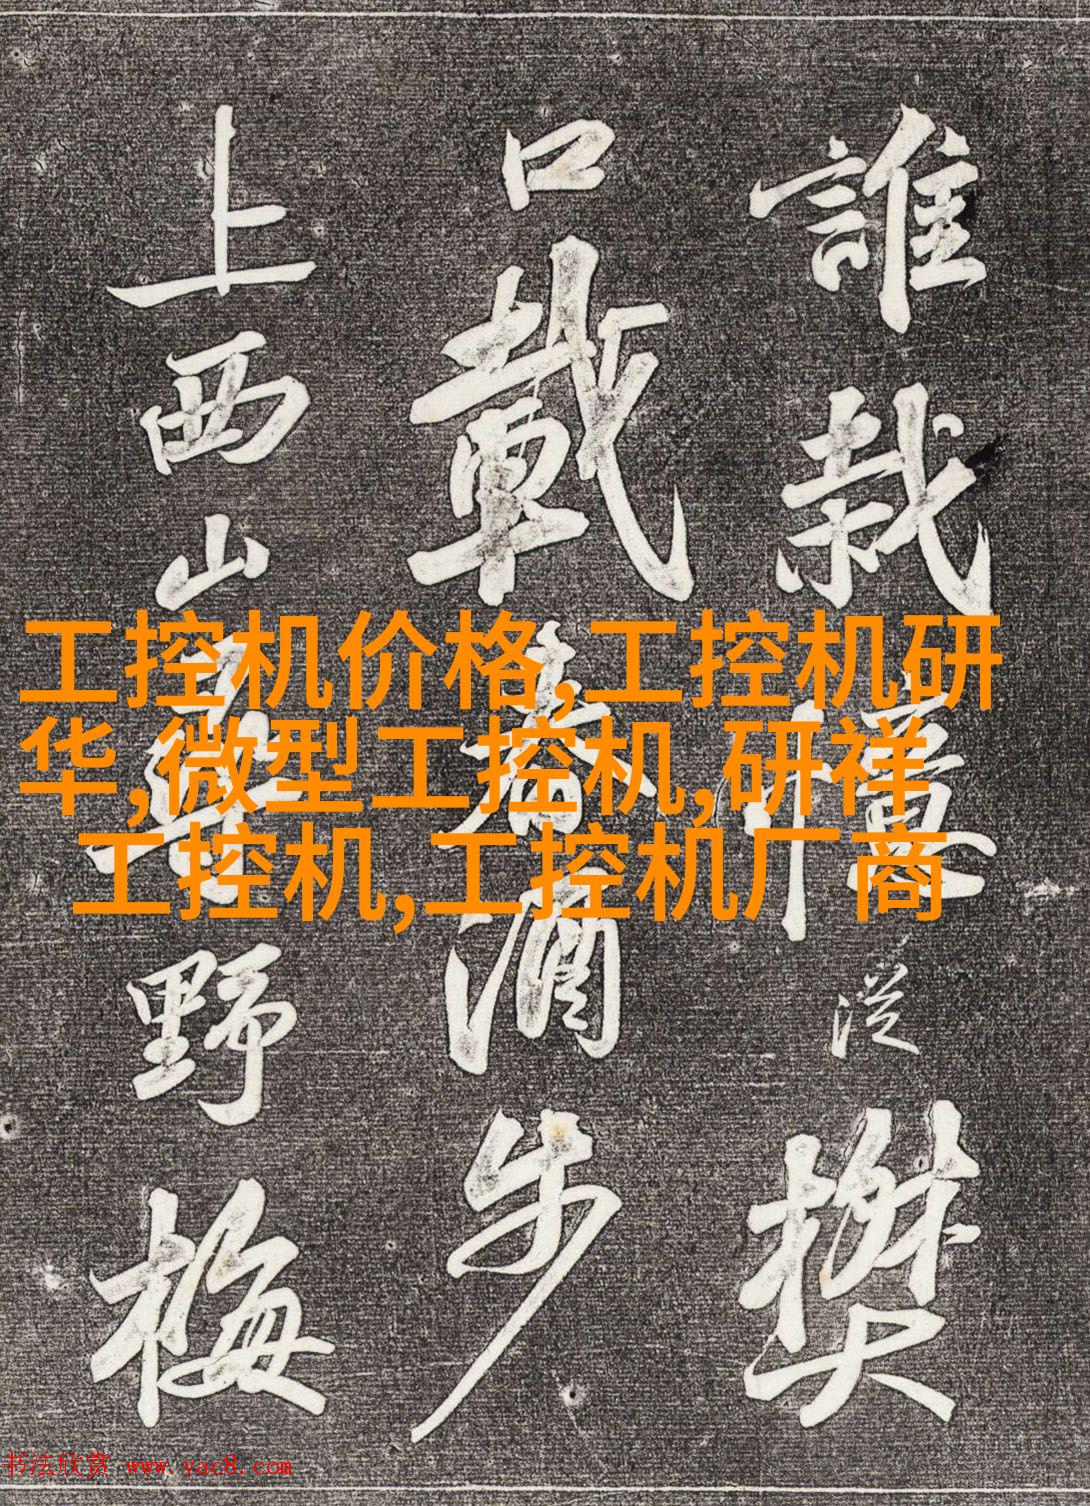 誰栽憶從樊
口載春酒步
上西山尋野梅
工控机价格,工控机研
华,微型工控机,研祥
工控机,工控机厂商
书法欣赏 www.yac8.com